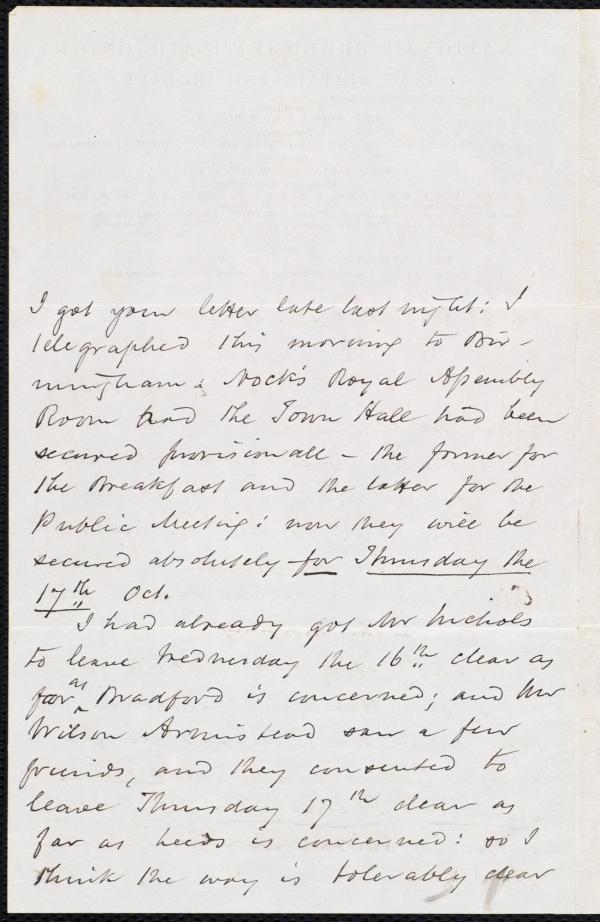 I got your letter late last night: I
telegraphed this morning to Bir-
mingham: Nock's Royal Assembly
Room and the Town Hall had been
secured provisionall - the former for
the Breakfast and the latter for the
Public Meeting: now they will be
secured absolutely for Thursday the
17th Oct.
I had already got Mr Nichols
to leave Wednesday the 16th clear as
far as Bradford is concerned; and Mr
Wilson Armistead saw a few
friends, and they consented to
leave Thursday 17th clear as
far as Leeds is concerned: so I
think the way is tolerably clear